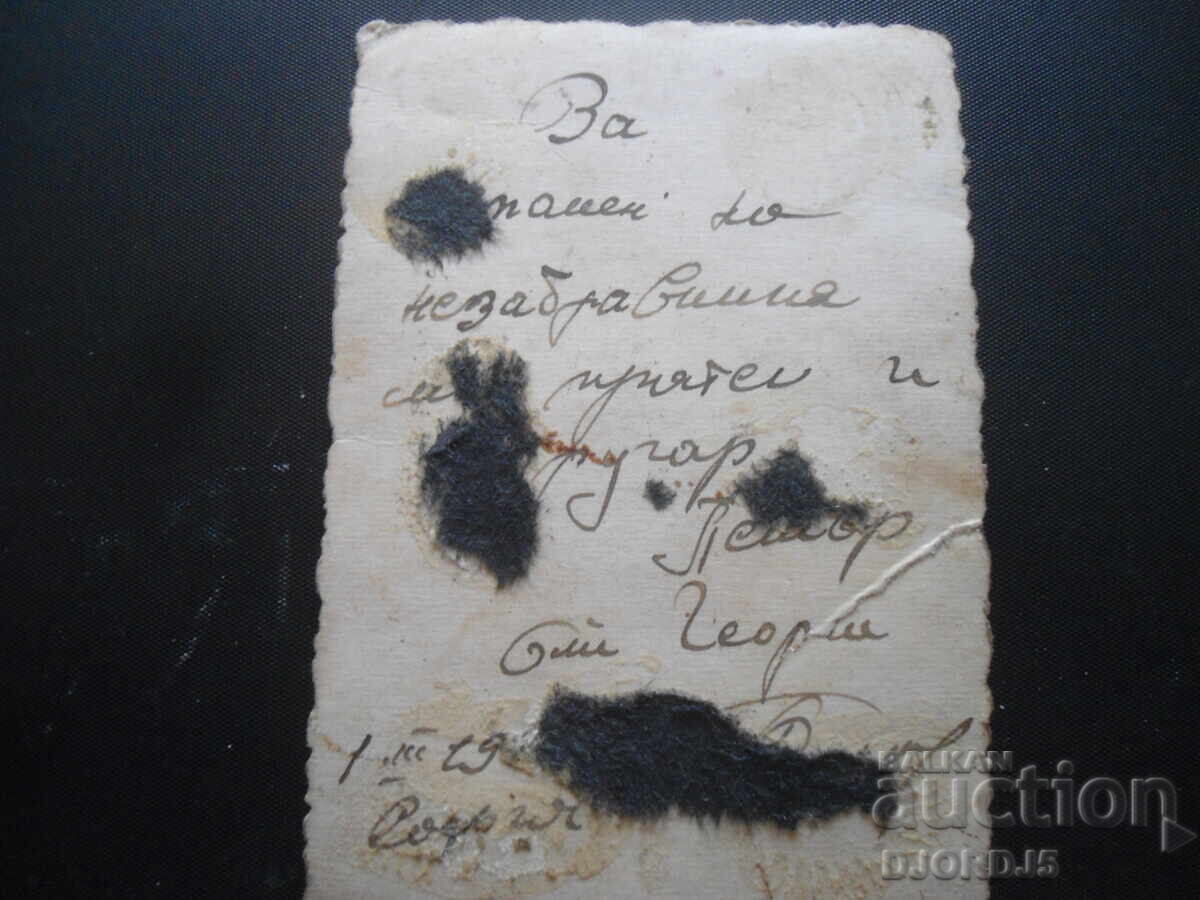 За
памен на
незабравимия
м приятел и
ругар
Петър
от Георги
1 III 19
София
BALKAN
auction
DJORDJ5